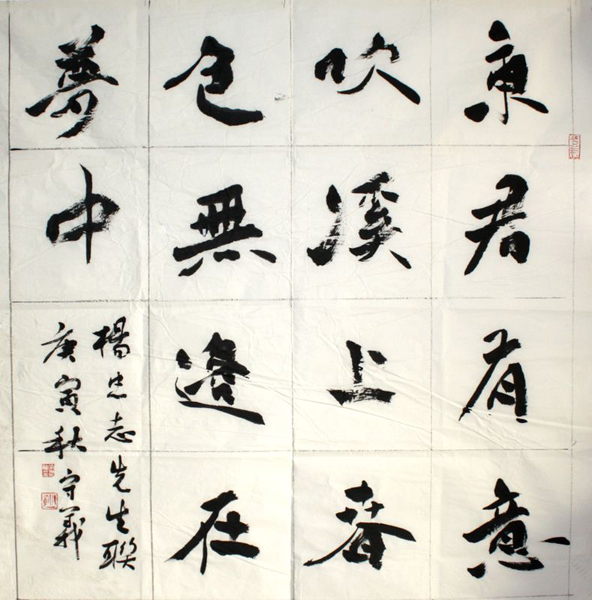 東君有意
吹溪上春
色無邊在
夢中
楊忠志先生聯
庚寅秋守義